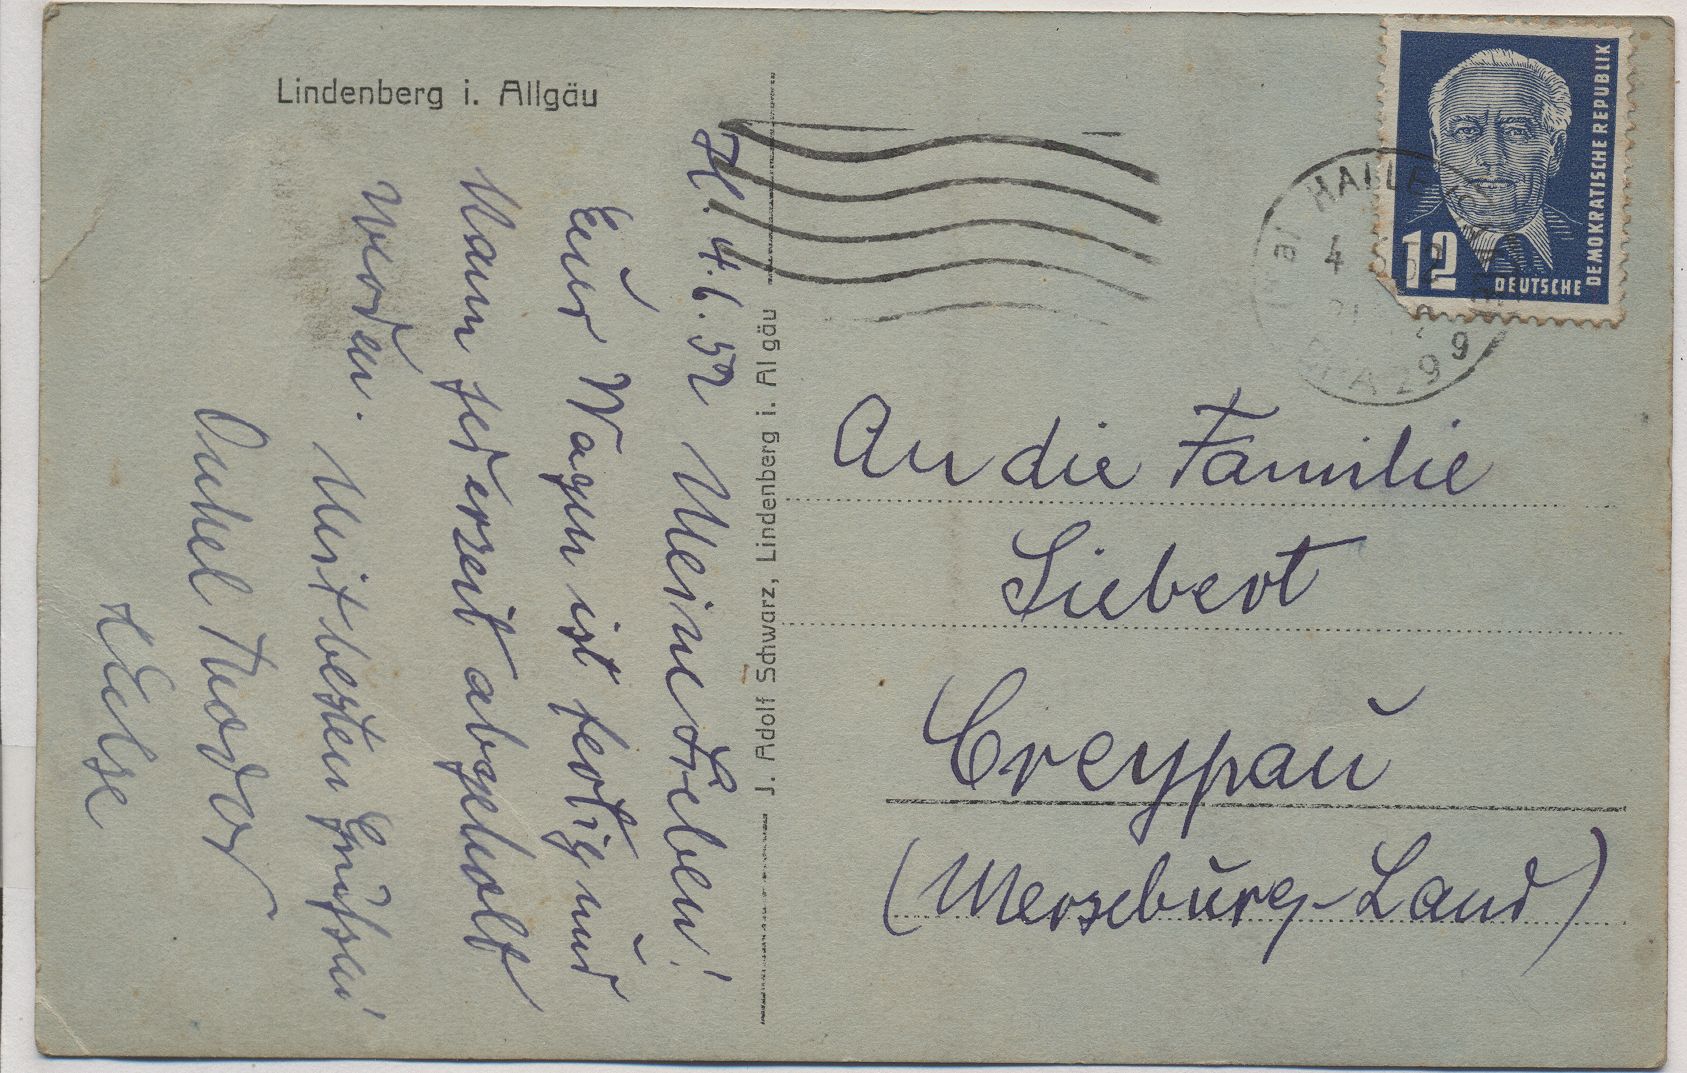 Lindenberg i. Allgäu
H. 4.6.52 Meine Lieben!
Euer Wagen ist fertig und
kann jederzeit abgeholt
werden.
Mit besten Grüßen!
Onkel Theodor
Hulse
J. Adolf Schwarz, Lindenberg i. Algäu
DEUTSCHE DEMOKRATISCHE REPUBLIK
12
HALLE
4
29
9
An die Familie
Liebert
Creypau
(Merseburg-Land)